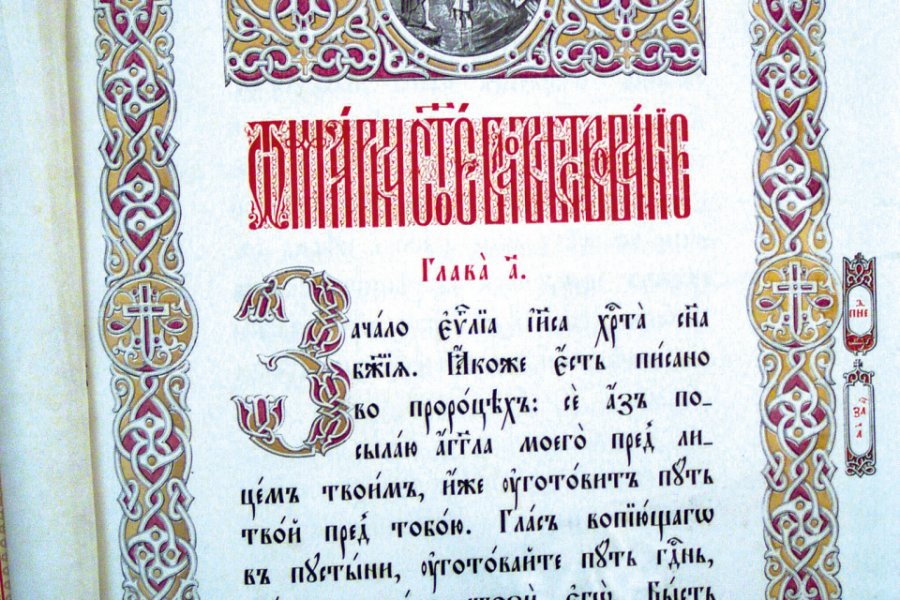 Ѿ ма́рка ст҃о́е бл҃говѣствова́нїе
Глава̀ а҃.
Зача́ло є҆ѵⷢ҇лїа і҆и҃са хрⷭ҇та̀ сн҃а
бж҃їѧ. Ꙗ҆́коже є҆́сть пи́сано
во проро́цѣхъ: сѐ а҆́зъ по-
сыла́ю а҆́гг҃ла моегѡ̀ пред̾ ли-
це́мъ твои́мъ, и҆́же ᲂу҆гото́витъ пꙋ́ть
тво́й пред̾ тобо́ю. Гла́съ вопїю́щагѡ
въ пꙋсты́ни, ᲂу҆гото́вайте пꙋ́ть гдⷭ҇нь,
є҆гѡ̀. Бы́сть